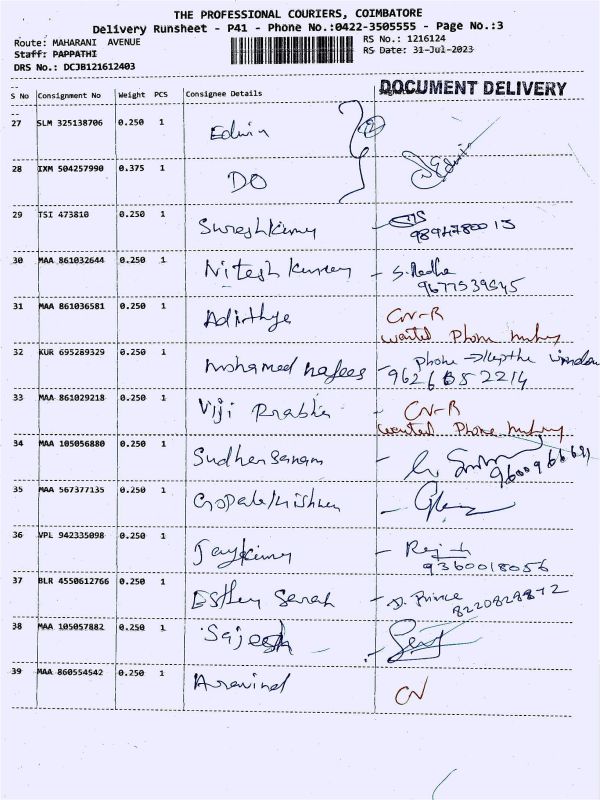 THE PROFESSIONAL COURIERS, COIMBATORE
Delivery Runsheet - P41 - Phone No.:0422-3505555 - Page No.:3
Route: MAHARANI AVENUE RS No.: 1216124
Staff: PAPPATHI RS Date: 31-Jul-2023
DRS No.: DCJB121612403
DOCUMENT DELIVERY
S No Consignment No Weight PCS Consignee Details
27 SLM 325138706 0.250 1 Edwin
28 IXM 504257990 0.375 1 DO Edwin
29 TSI 473810 0.250 1 Sureshkumar
9894780015
30 MAA 861032644 0.250 1 Nitesh Kumar - S. Radha
9677539545
31 MAA 861036581 0.250 1 Adithya CN-R
wanted Phone
32 KUR 695289329 0.250 1 mohamed nafees - phone
9626852214
33 MAA 861029218 0.250 1 Viji Prabha - CN-R
wanted Phone
34 MAA 105056880 0.250 1 -
35 MAA 567377135 0.250 1 Gopalakrishnan -
36 VPL 942335098 0.250 1 Jaykumar -
9360018056
37 BLR 4550612766 0.250 1 Esther Sarah - J. Prince
8220829872
38 MAA 105057882 0.250 1 Sajeesh
39 MAA 860554542 0.250 1 Aravind CN